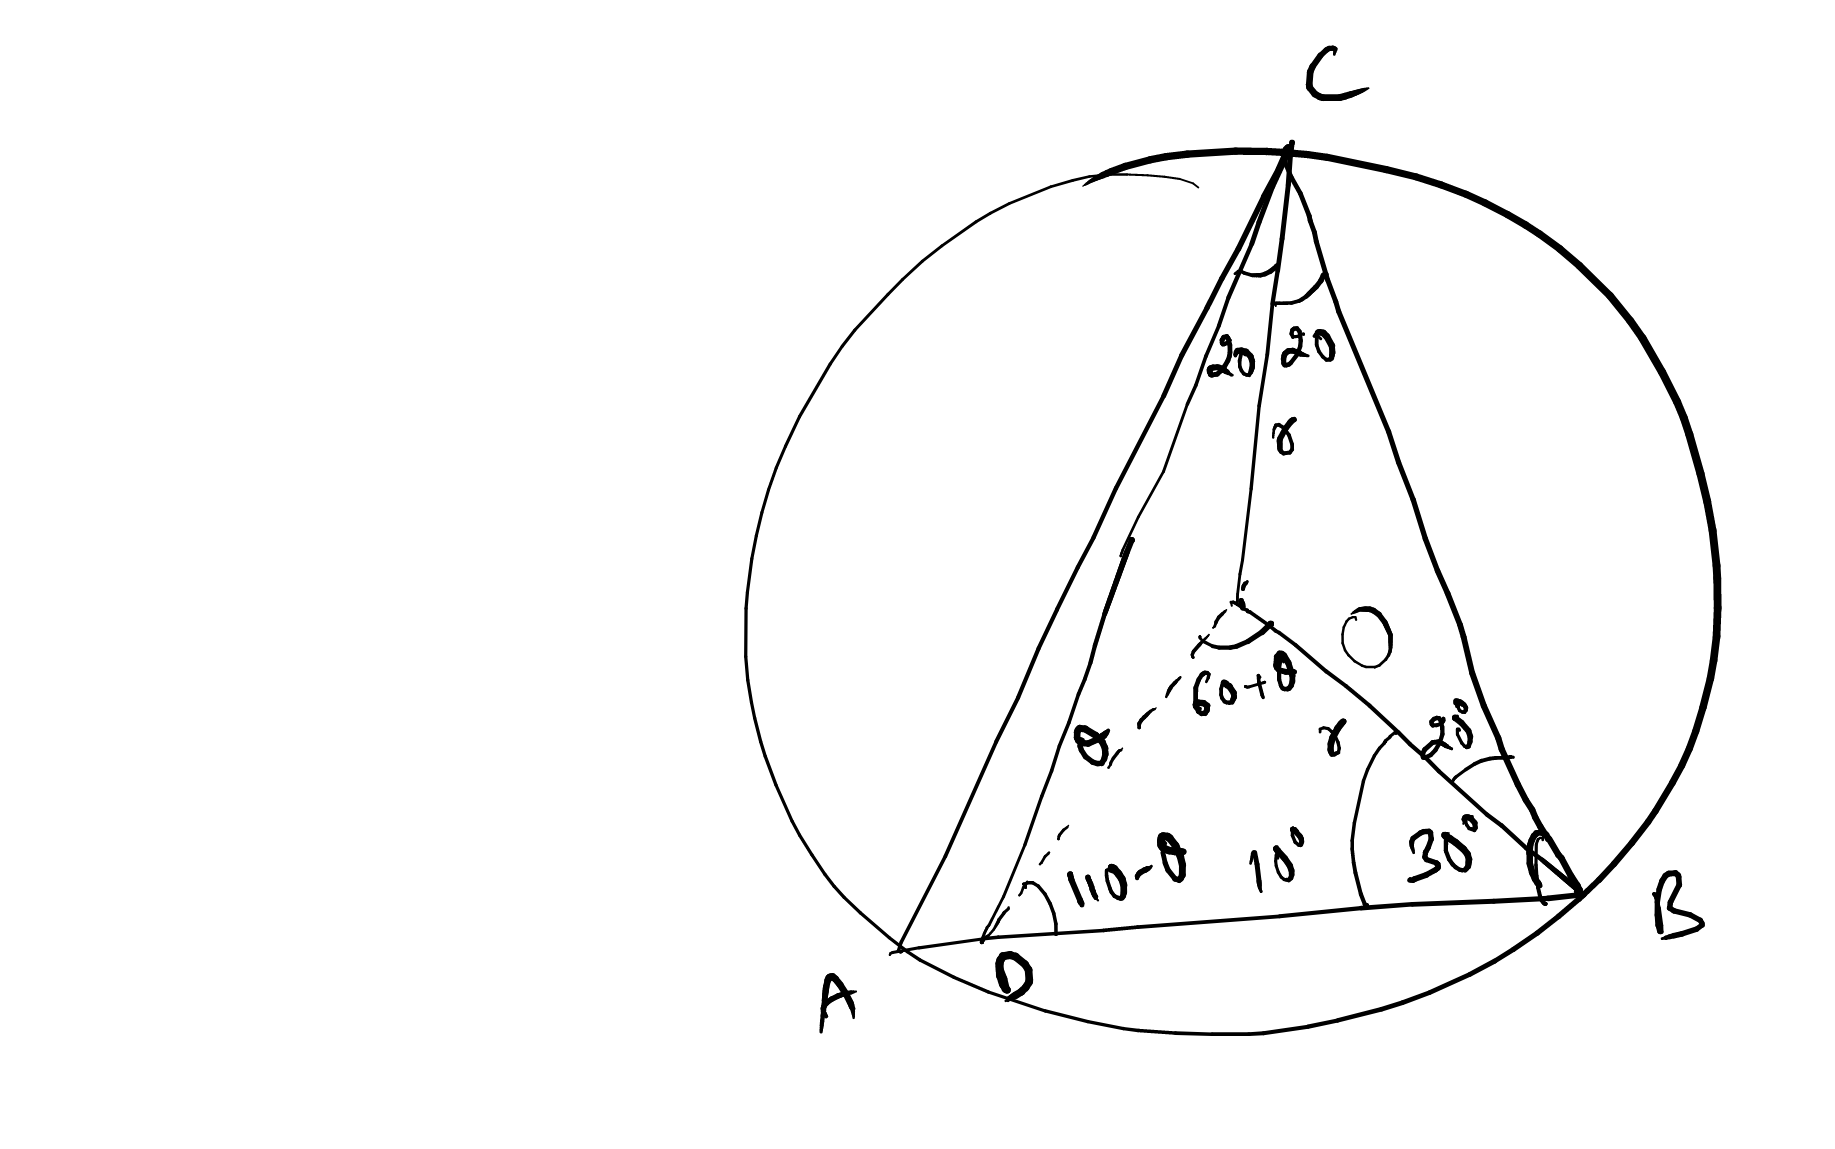 C
20 20
r
O
60+θ
θ r 20°
110-θ 10° 30°
B
A D